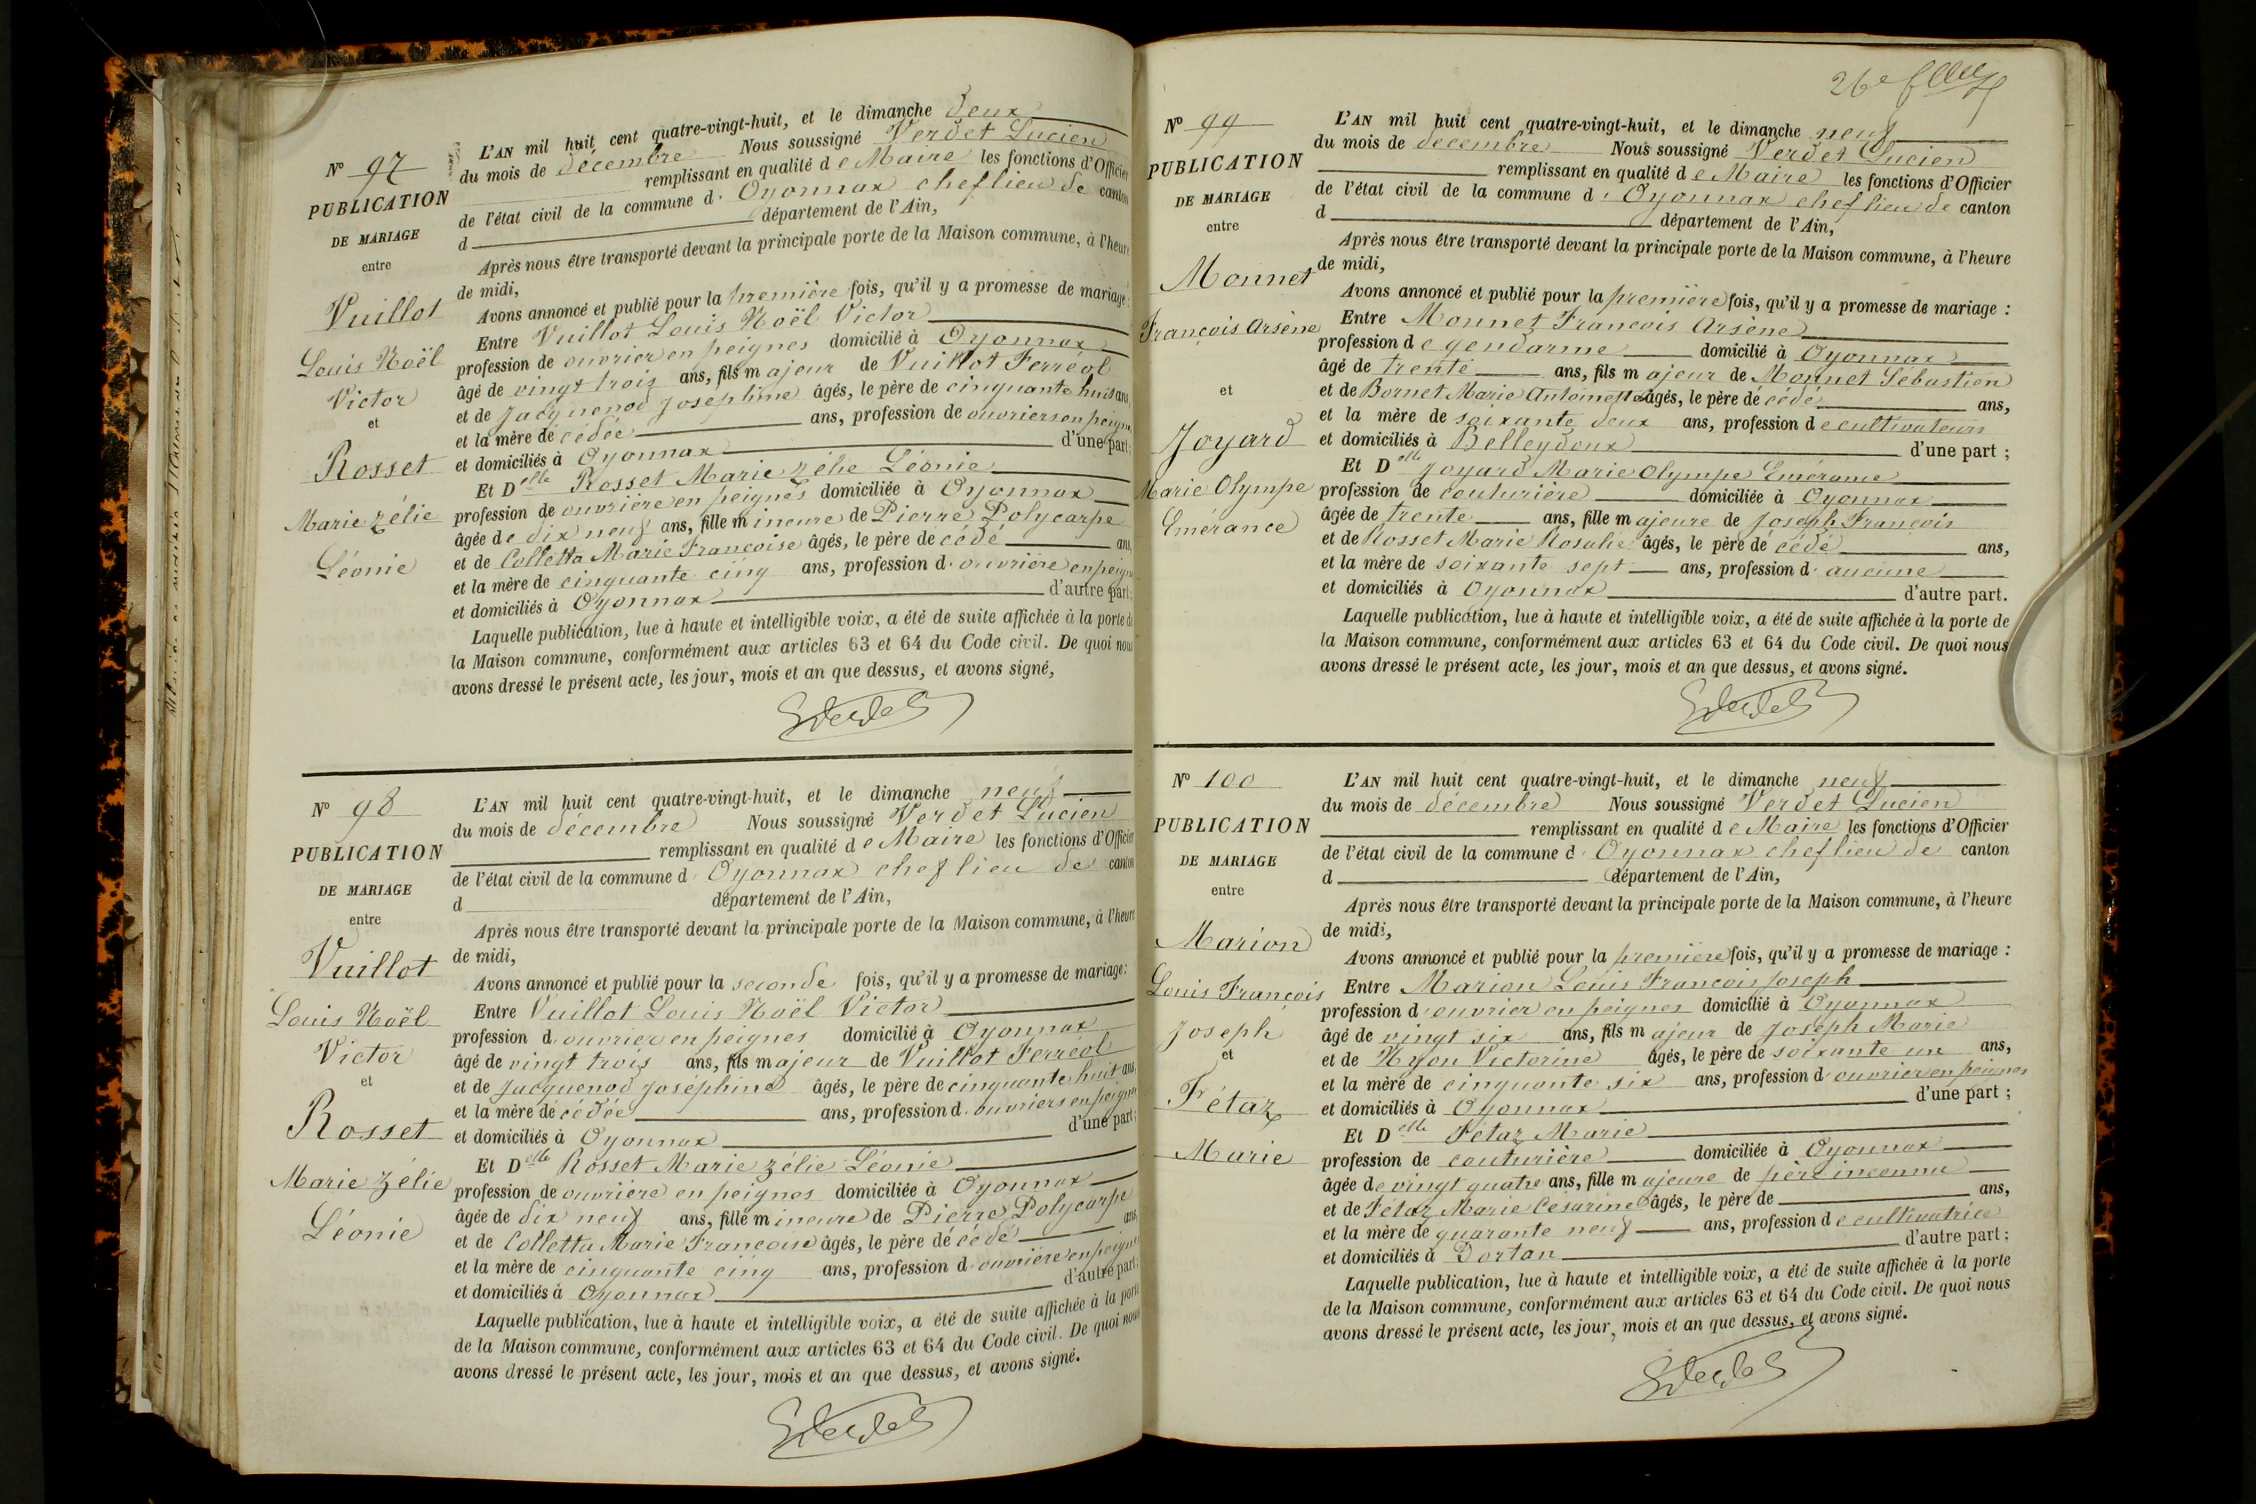 N° 97
PUBLICATION
DE MARIAGE
entre
Vuillot
Louis Noël
Victor
et
Rosset
Marie Zélie
Léonie
L'AN mil huit cent quatre-vingt-huit, et le dimanche deux
du mois de décembre Nous soussigné Verdet Lucien
remplissant en qualité de Maire les fonctions d'Officier
de l'état civil de la commune d'Oyonnax chef lieu de canton
d département de l'Ain,
Après nous être transporté devant la principale porte de la Maison commune, à l'heure
de midi,
Avons annoncé et publié pour la première fois, qu'il y a promesse de mariage:
Entre Vuillot Louis Noël Victor
profession de ouvrier en peignes domicilié à Oyonnax
âgé de vingt trois ans, fils majeur de Vuillot Ferréol
et de Jacquenod Joséphine âgés, le père de cinquante huit ans,
et la mère décédée ans, profession de ouvriers en peignes
et domiciliés à Oyonnax d'une part;
Et Delle Rosset Marie Zélie Léonie
profession de ouvrière en peignes domiciliée à Oyonnax
âgée de dix neuf ans, fille mineure de Pierre Polycarpe
et de Colletta Marie Françoise âgés, le père décédé ans,
et la mère de cinquante cinq ans, profession d'ouvrière en peignes
et domiciliés à Oyonnax d'autre part;
Laquelle publication, lue à haute et intelligible voix, a été de suite affichée à la porte de
la Maison commune, conformément aux articles 63 et 64 du Code civil. De quoi nous
avons dressé le présent acte, les jour, mois et an que dessus, et avons signé,
N° 98
PUBLICATION
DE MARIAGE
entre
Vuillot
Louis Noël
Victor
et
Rosset
Marie Zélie
Léonie
L'AN mil huit cent quatre-vingt-huit, et le dimanche neuf
du mois de décembre Nous soussigné Verdet Lucien
remplissant en qualité de Maire les fonctions d'Officier
de l'état civil de la commune d'Oyonnax chef lieu de canton
d département de l'Ain,
Après nous être transporté devant la principale porte de la Maison commune, à l'heure
de midi,
Avons annoncé et publié pour la seconde fois, qu'il y a promesse de mariage:
Entre Vuillot Louis Noël Victor
profession d'ouvrier en peignes domicilié à Oyonnax
âgé de vingt trois ans, fils majeur de Vuillot Ferréol
et de Jacquenod Joséphine âgés, le père de cinquante huit ans,
et la mère décédée ans, profession d'ouvriers en peignes
et domiciliés à Oyonnax d'une part;
Et Delle Rosset Marie Zélie Léonie
profession de ouvrière en peignes domiciliée à Oyonnax
âgée de dix neuf ans, fille mineure de Pierre Polycarpe
et de Colletta Marie Françoise âgés, le père décédé ans,
et la mère de cinquante cinq ans, profession d'ouvrière en peignes
et domiciliés à Oyonnax d'autre part;
Laquelle publication, lue à haute et intelligible voix, a été de suite affichée à la porte
de la Maison commune, conformément aux articles 63 et 64 du Code civil. De quoi nous
avons dressé le présent acte, les jour, mois et an que dessus, et avons signé.
26e
N° 99
PUBLICATION
DE MARIAGE
entre
Monnet
François Arsène
et
Joyard
Marie Olympe
Emérance
L'AN mil huit cent quatre-vingt-huit, et le dimanche neuf
du mois de décembre Nous soussigné Verdet Lucien
remplissant en qualité de Maire les fonctions d'Officier
de l'état civil de la commune d'Oyonnax chef lieu de canton
d département de l'Ain,
Après nous être transporté devant la principale porte de la Maison commune, à l'heure
de midi,
Avons annoncé et publié pour la première fois, qu'il y a promesse de mariage :
Entre Monnet François Arsène
profession de gendarme domicilié à Oyonnax
âgé de trente ans, fils majeur de Monnet Sébastien
et de Bornet Marie Antoinette âgés, le père décédé ans,
et la mère de soixante deux ans, profession de cultivateurs
et domiciliés à Belleydoux d'une part ;
Et Delle Joyard Marie Olympe Emérame
profession de couturière domiciliée à Oyonnax
âgée de trente ans, fille majeure de Joseph François
et de Rosset Marie Rosalie âgés, le père décédé ans,
et la mère de soixante sept ans, profession d'aucune
et domiciliés à Oyonnax d'autre part.
Laquelle publication, lue à haute et intelligible voix, a été de suite affichée à la porte de
la Maison commune, conformément aux articles 63 et 64 du Code civil. De quoi nous
avons dressé le présent acte, les jour, mois et an que dessus, et avons signé.
N° 100
PUBLICATION
DE MARIAGE
entre
Marion
Louis François
Joseph
et
Fétaz
Marie
L'AN mil huit cent quatre-vingt-huit, et le dimanche neuf
du mois de décembre Nous soussigné Verdet Lucien
remplissant en qualité de Maire les fonctions d'Officier
de l'état civil de la commune d'Oyonnax chef lieu de canton
d département de l'Ain,
Après nous être transporté devant la principale porte de la Maison commune, à l'heure
de midi,
Avons annoncé et publié pour la première fois, qu'il y a promesse de mariage :
Entre Marion Louis François Joseph
profession d'ouvrier en peignes domicilié à Oyonnax
âgé de vingt six ans, fils majeur de Joseph Marie
et de Nyon Victorine âgés, le père de soixante un ans,
et la mère de cinquante six ans, profession d'ouvrier en peignes
et domiciliés à Oyonnax d'une part ;
Et Delle Fétaz Marie
profession de couturière domiciliée à Oyonnax
âgée de vingt quatre ans, fille majeure de père inconnu
et de Fétaz Marie Césarine âgés, le père de ans,
et la mère de quarante neuf ans, profession de cultivatrice
et domiciliés à Dortan d'autre part ;
Laquelle publication, lue à haute et intelligible voix, a été de suite affichée à la porte
de la Maison commune, conformément aux articles 63 et 64 du Code civil. De quoi nous
avons dressé le présent acte, les jour, mois et an que dessus, et avons signé.